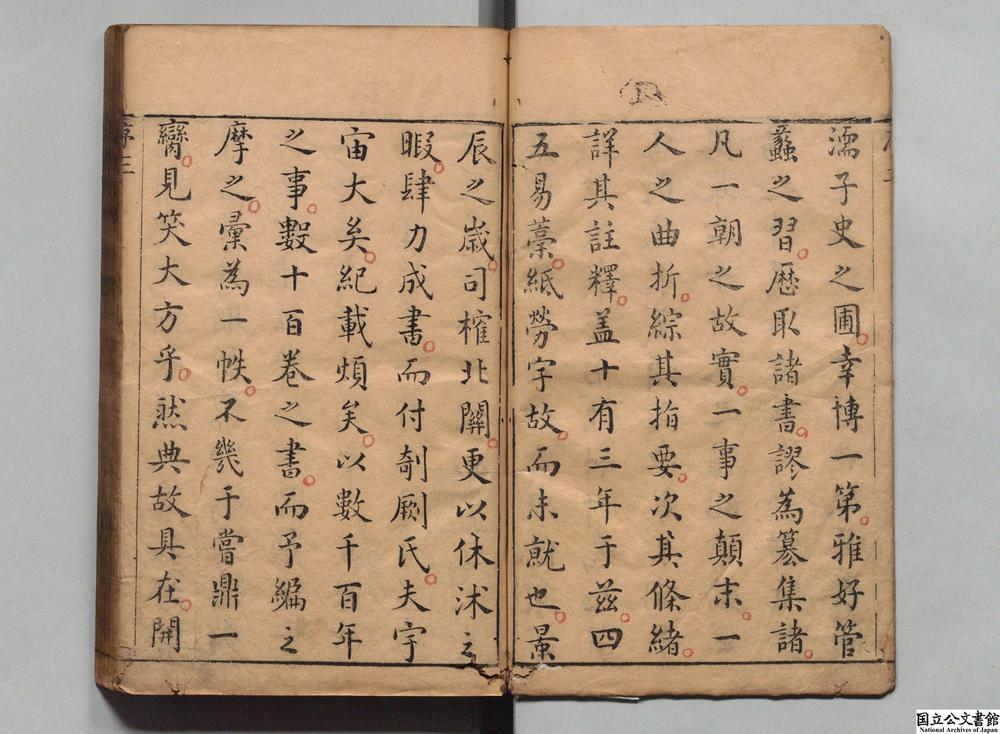 濡子史之圃幸博一第雅好管
蠡之習歴取諸書謬為纂集諸
凡一朝之故實一事之顛末一
人之曲折綜其指要次其條緒
詳其註釋盖十有三年于兹四
五易藁紙勞字故而未就也景
辰之歲司榷北關更以休沐之
暇肆力成書而付剞劂氏夫宇
宙大矣紀載煩矣以數千百年
之事數十百卷之書而予編之
摩之彙為一帙不幾于嘗鼎一
臠見笑大方乎然典故具在開
序三
国立公文書館
National Archives of Japan